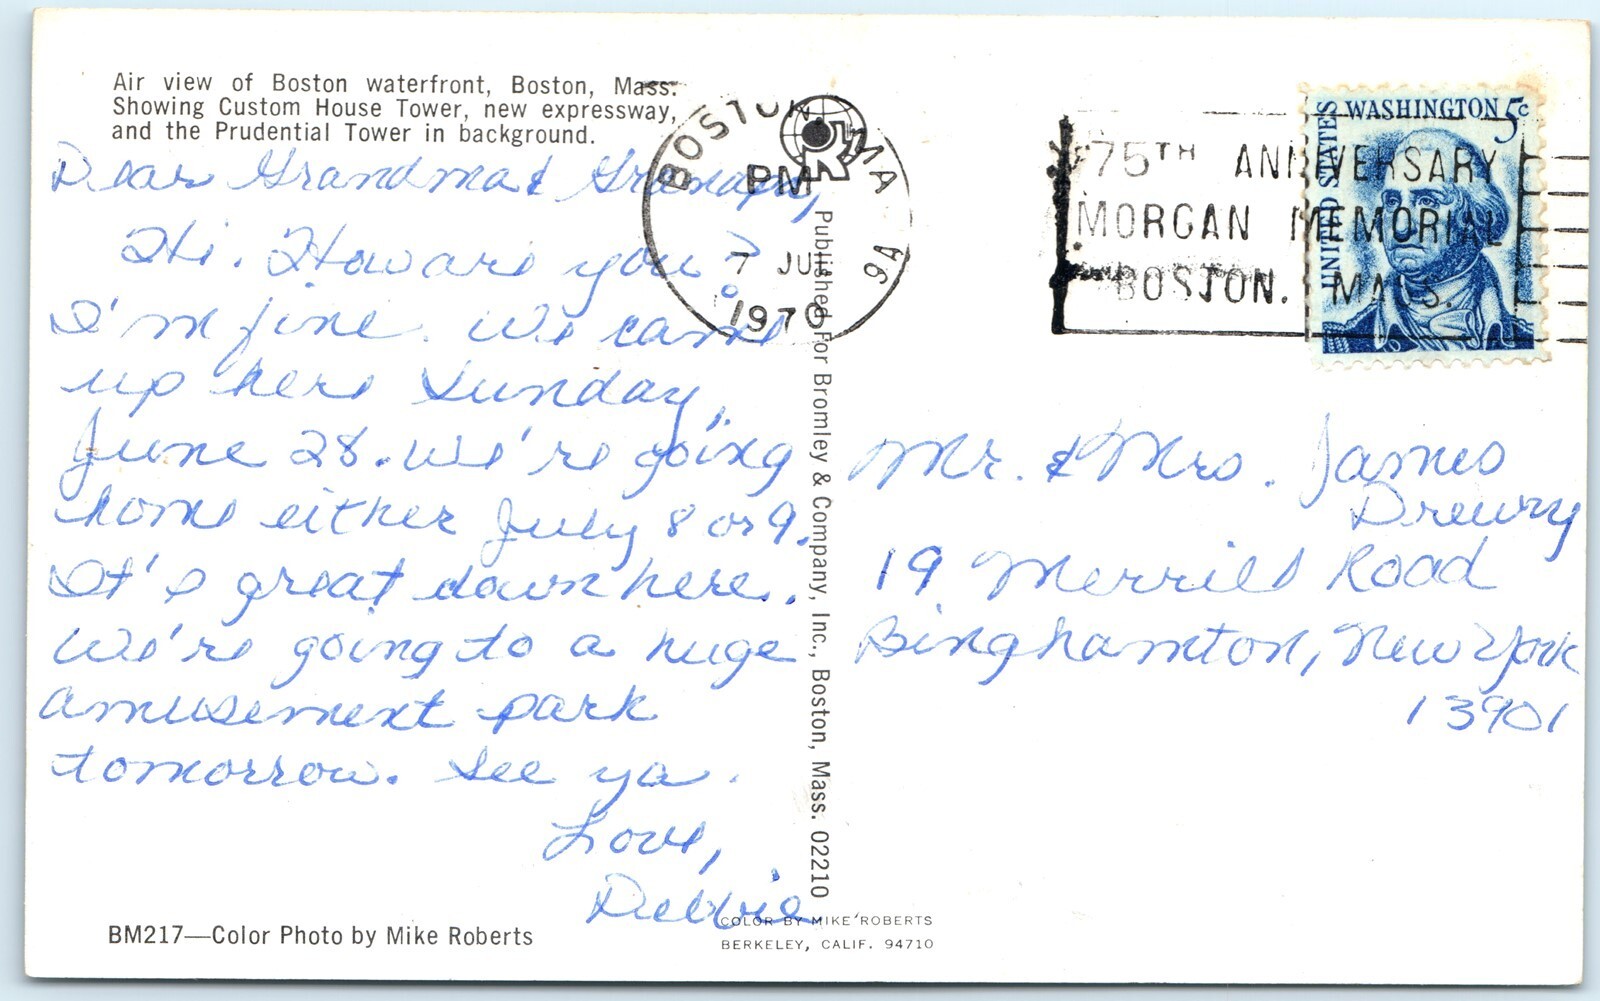 Air view of Boston waterfront, Boston, Mass.
Showing Custom House Tower, new expressway,
and the Prudential Tower in background.
Dear Grandma & Grampy,
Hi. How are you?
I'm fine. We came
up here Sunday,
June 28. We're going
home either July 8 or 9.
It's great down here.
We're going to a huge
amusement park
tomorrow. See ya.
Love,
Debbie
BM217—Color Photo by Mike Roberts
Published For Bromley & Company, Inc., Boston, Mass. 02210
COLOR BY MIKE ROBERTS
BERKELEY, CALIF. 94710
BOSTON, MA
PM
7 JUL
1970
75TH ANNIVERSARY
MORGAN MEMORIAL
BOSTON, MASS.
UNITED STATES
WASHINGTON 5c
Mr. & Mrs. James
Drewry
19 Merrill Road
Binghamton, New York
13901